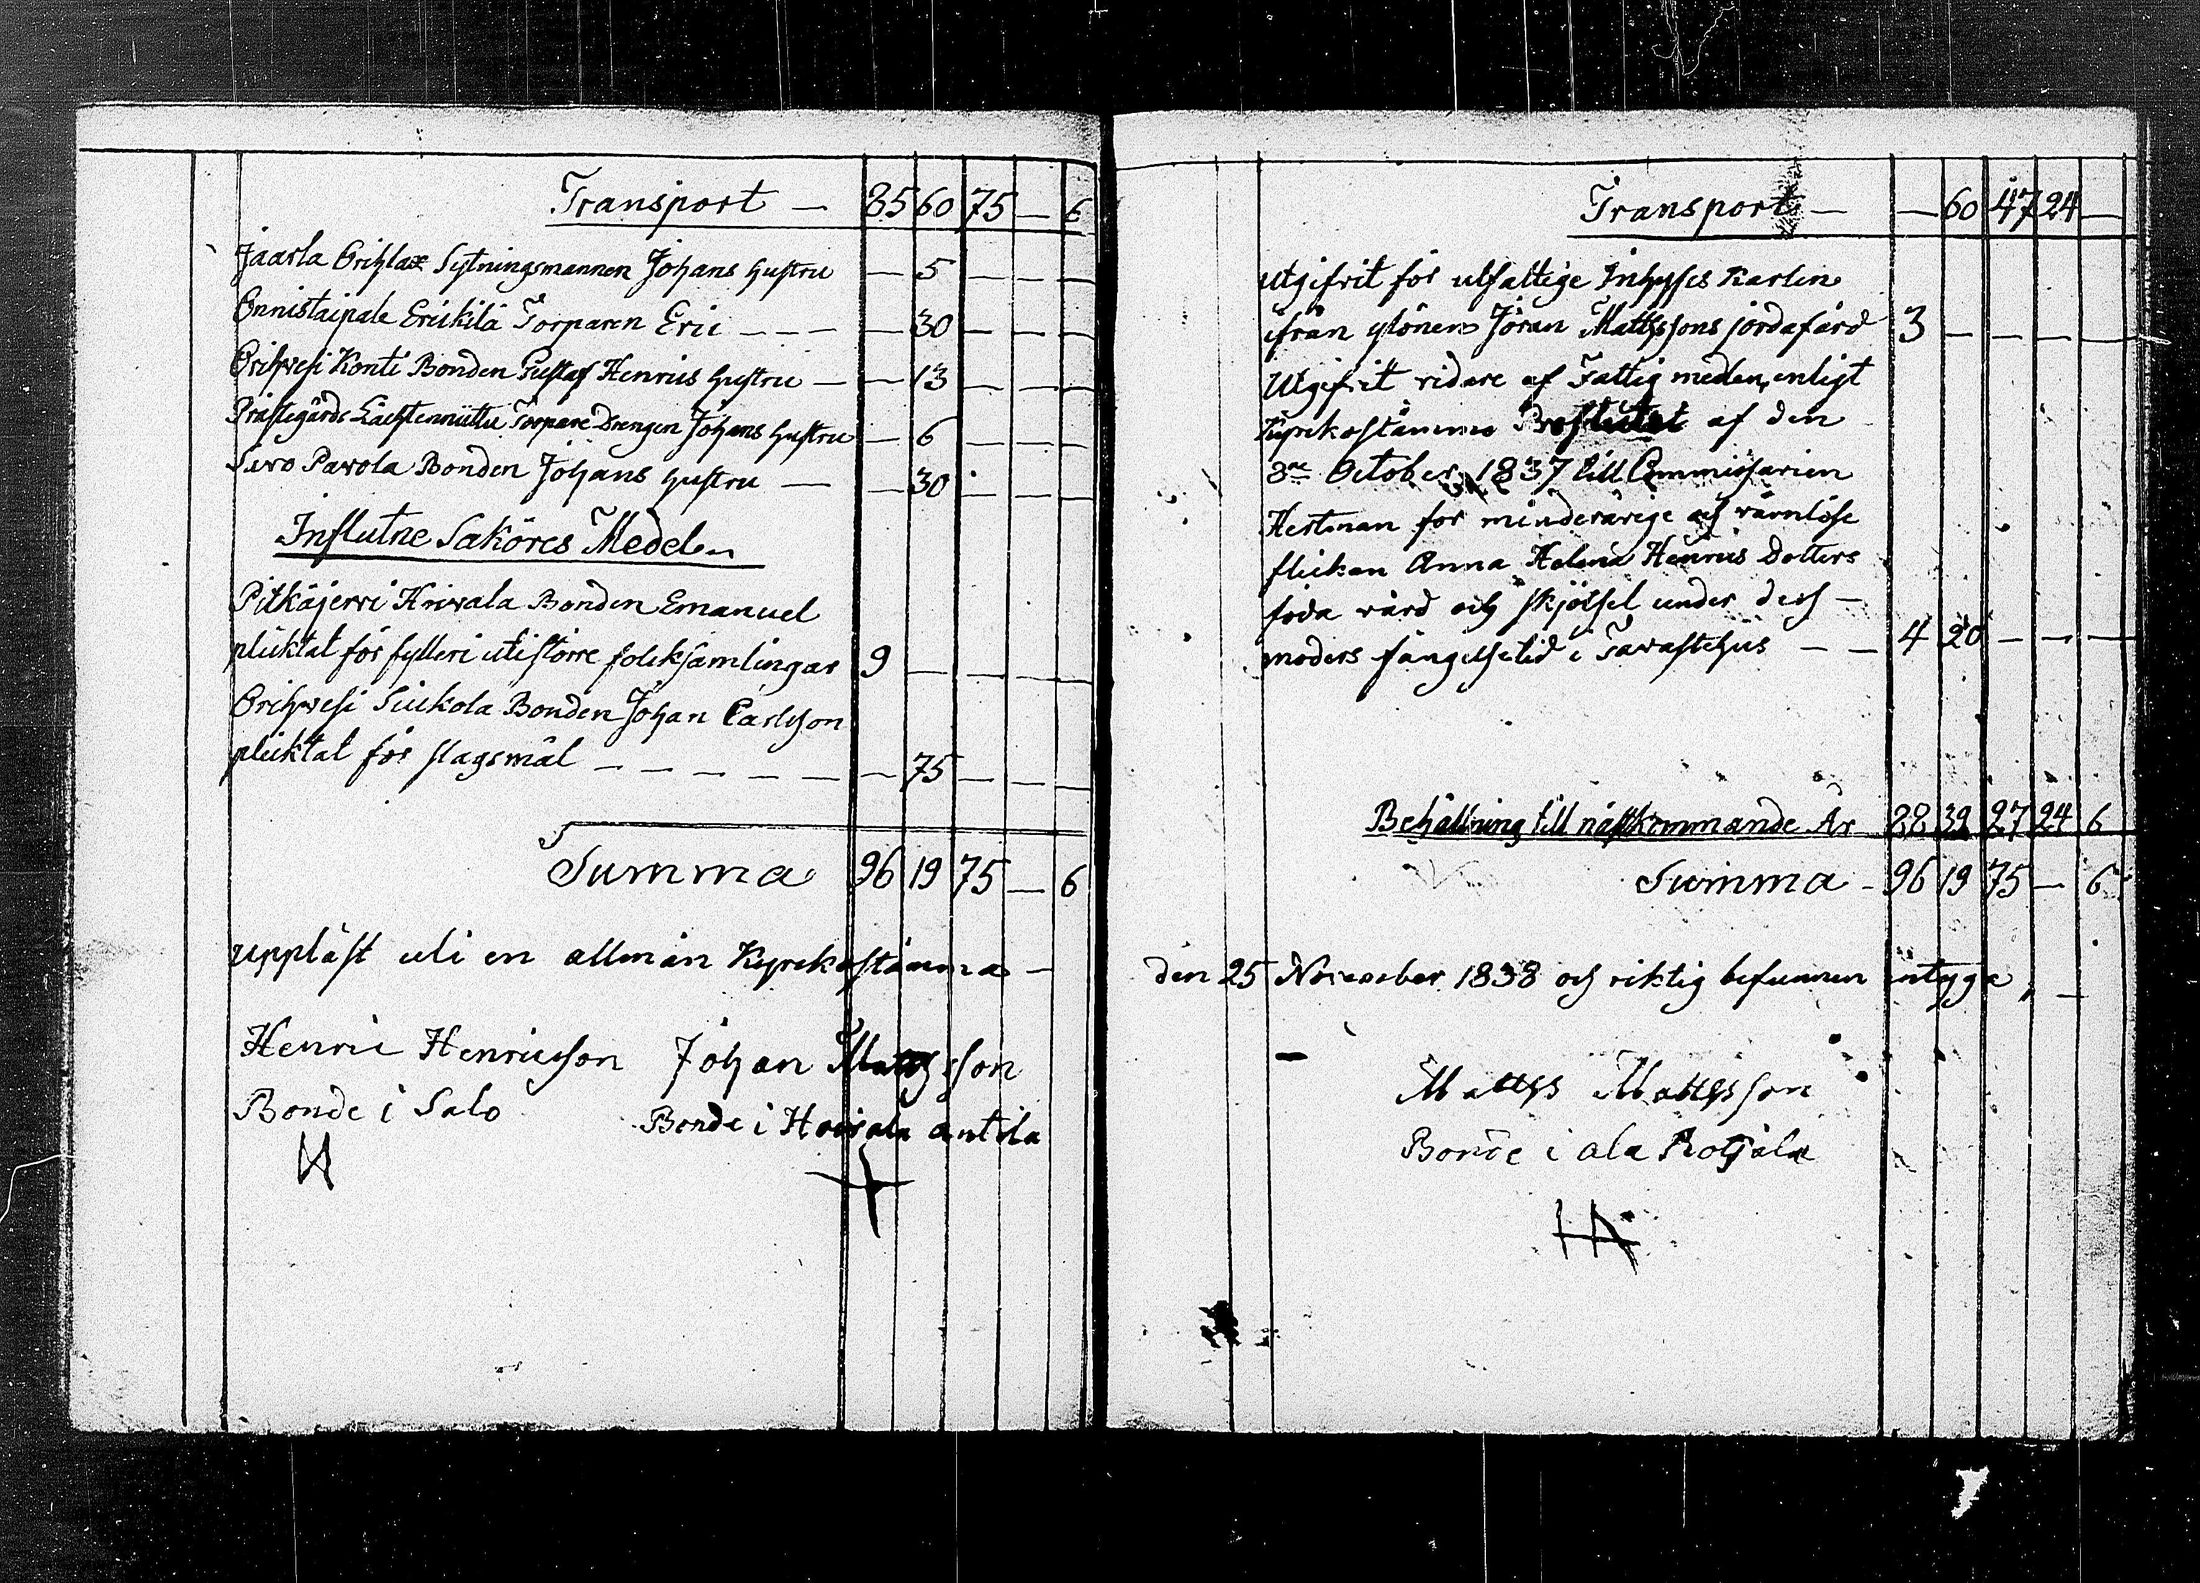 Transport — 85 60 75 — 6
Jaarla Orihlax Sytningsmannen Johans hustru — 5 — — —
Onnistaipale Erickilä Torparen Eric — — — — 30 — — —
Orihvesi Konti Bonden Gustaf Henrics hustru — — 13 — — —
Prästegårds Torpare Drengen Johans hustru — 6 — — —
Suvo Pavola Bonden Johans hustru — — 30 — — —
Influtne Saköres Medel
Pitkäjervi Hirvala Bonden Emanuel
pliktat för fylleri uti större folcksamlingar 9 — — — —
Orihvesi Siukola Bonden Johan Carlsson
pliktat för slagsmål — — — — — — 75 — — —
Summa 96 19 75 — 6
uppläst uti en allmän Kyrckostämma —
Henric Henricsson Johan Mattsson
Bonde i Salo Bonde i Hoivala Antila
Transport — — 60 47 24 —
Utgifvit för utfattige Inhyses Karlen
ifrån ylönen Jöran Mattssons jordafärd 3 — — — —
Utgifvit vidare af Fattig medlen, enligt
Kyrckostämmo Beslutet af den
8de October 1837 till Commissarien
Hertman för minderårige och värnlöse
flickan Anna Helena Henrics Dotters
föda vård och skjötsel under dess —
moders fängelsetid i Tavastehus — — 4 20 — — —
Behållning till nästkommande År 28 39 27 24 6
Summa - 96 19 75 — 6
den 25 November 1838 och riktig befunnen intyga, —
Matths Mattsson
Bonde i ala Rotjala